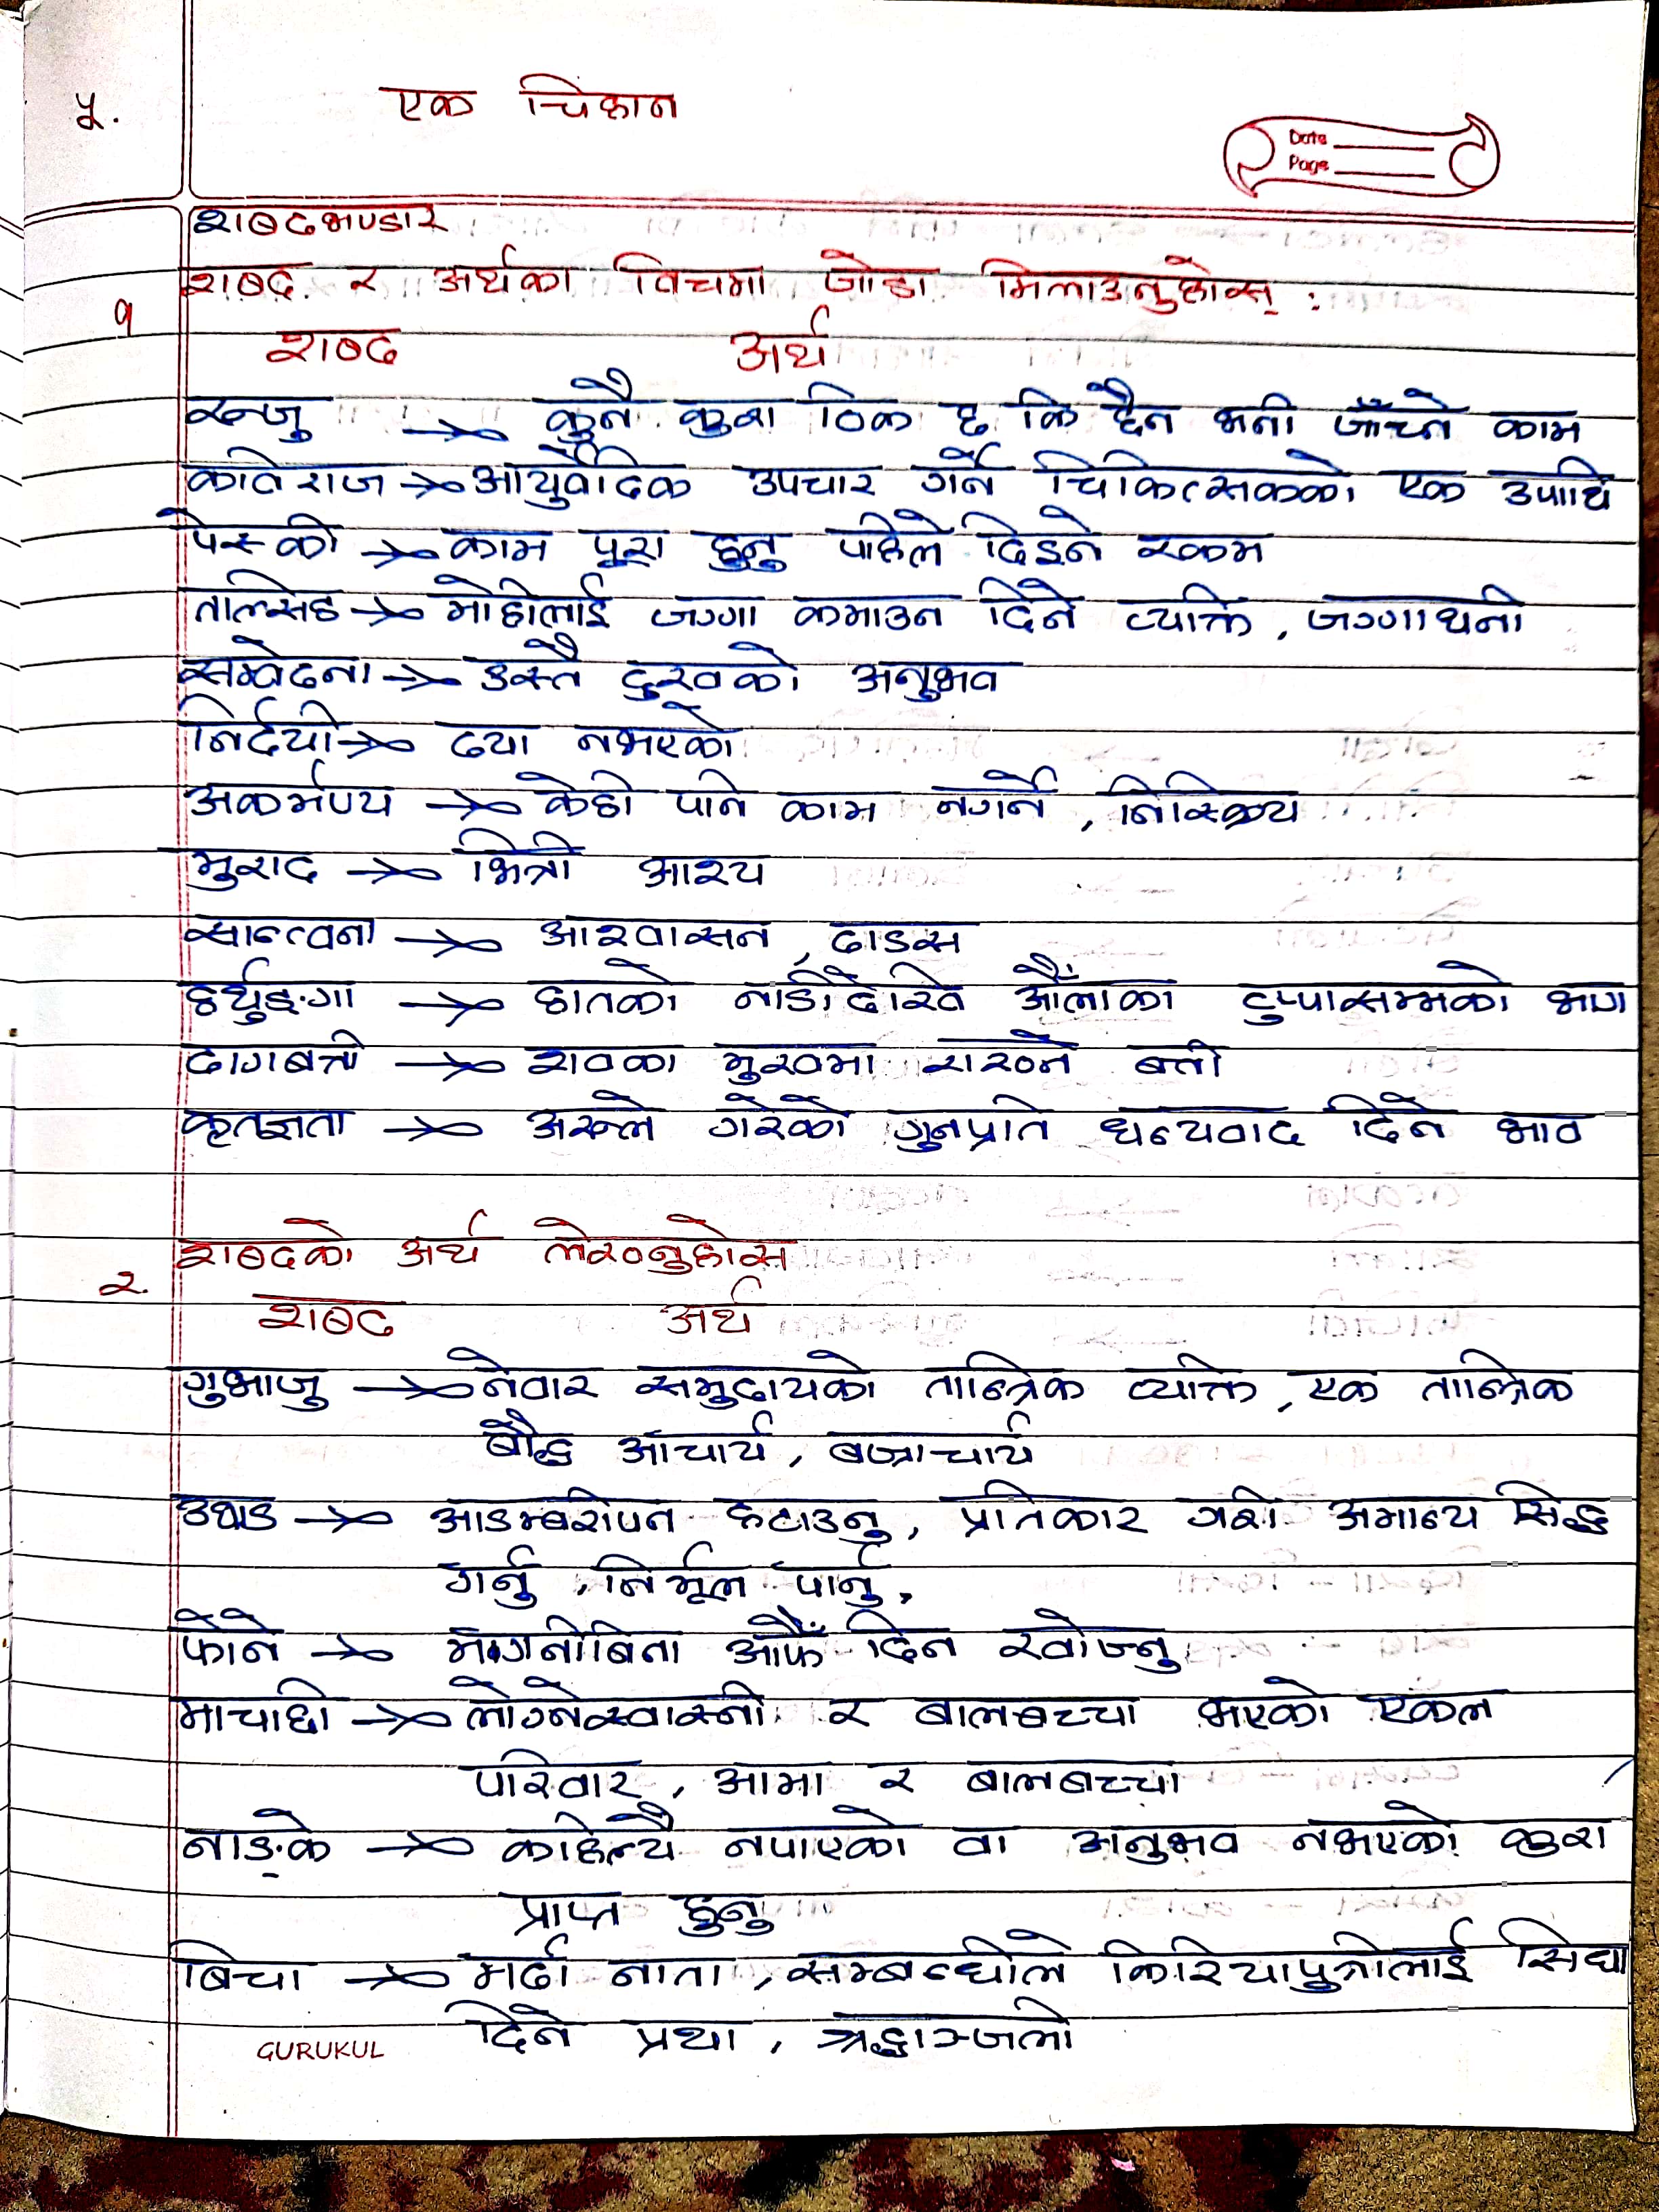 ५. एक चिहान
Date
Page
शब्दभण्डार
१ शब्द र अर्थका विचमा जोडा मिलाउनुहोस् :
शब्द अर्थ
रुजु → कुनै कुरा ठिक छ कि छैन भनी जाँच्ने काम
कविराज → आयुर्वेदिक उपचार गर्ने चिकित्सकको एक उपाधि
पेस्की → काम पूरा हुनु पहिले दिइने रकम
ताल्सिङ → मोहीलाई जग्गा कमाउन दिने व्यक्ति, जग्गाधनी
सम्वेदना → उस्तै दुखको अनुभव
निर्दयी → दया नभएको
अकर्मण्य → केही पनि काम नगर्ने, निस्क्रिय
मुराद → भित्री आश्य
सान्त्वना → आश्वासन, ढाडस
हर्थुङ्गा → हातको नाडीदेखि औंलाका टुप्पासम्मको भाग
दागबत्ती → शवका मुखमा राख्ने बत्ती
कृतज्ञता → अरूले गरेको गुनप्रति धन्यवाद दिने भाव
२. शब्दको अर्थ लेख्नुहोस
शब्द अर्थ
गुभाजु → नेवार समुदायको तान्त्रिक व्यक्ति, एक तान्त्रिक
बौद्ध आचार्य, बज्राचार्य
उधाड → आडम्बरीपन हटाउनु, प्रतिकार गरी अमान्य सिद्ध
गर्नु, निर्मूल पार्नु,
फोने → मागनीबिना आफैँ दिन खोज्नु
माचाछी → लोग्नेस्वास्नी र बालबच्चा भएको एकल
परिवार, आमा र बालबच्चा
नाङ्के → कहिल्यै नपाएको वा अनुभव नभएको कुरा
प्राप्त हुनु
बिचा → मर्दा नाता, सम्बन्धीले किरियापुत्रीलाई सिधा
दिने प्रथा, श्रद्धाञ्जली
GURUKUL